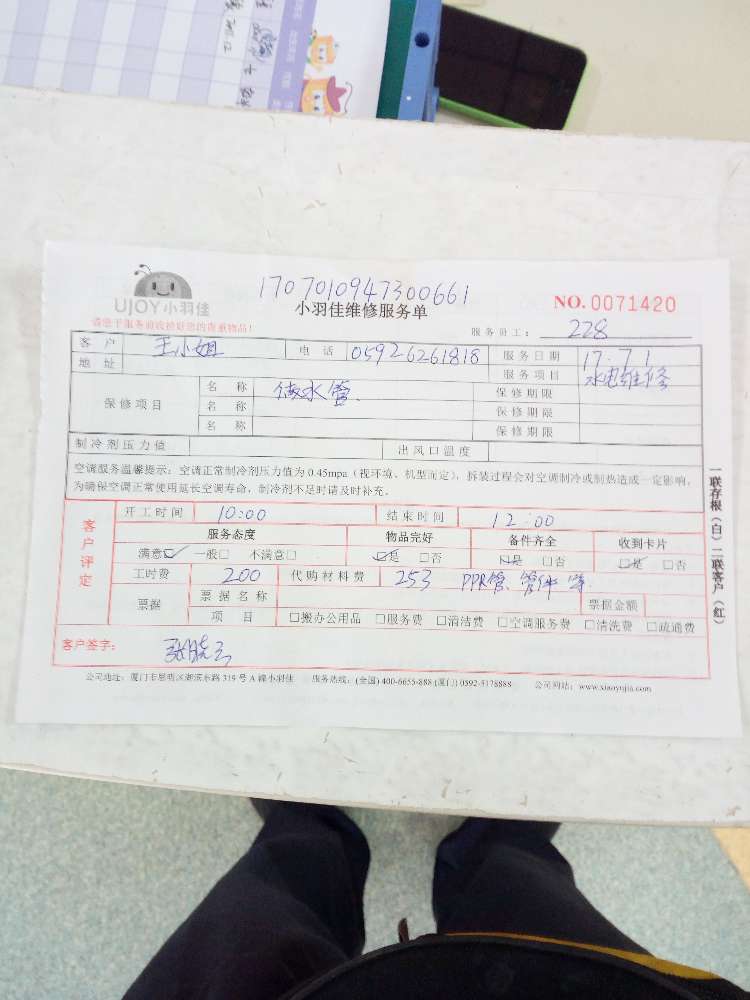 1707010947300661
UJOY小羽佳
小羽佳维修服务单
NO.0071420
请您于服务前收拾好您的贵重物品！
服务员工： 228
客 户 王小姐 电 话 05926261818 服务日期 17.7.1
地 址 服务项目 水电维修
保修项目 名 称 做水管 保修期限
名 称 保修期限
名 称 保修期限
制冷剂压力值 出风口温度
空调服务温馨提示：空调正常制冷剂压力值为0.45mpa（视环境、机型而定），拆装过程会对空调制冷或制热造成一定影响，
为确保空调正常使用延长空调寿命，制冷剂不足时请及时补充。
客户评定
开工时间 10:00 结束时间 12:00
服务态度 物品完好 备件齐全 收到卡片
满意☑ 一般□ 不满意□ ☑是 □否 ☑是 □否 ☑是 □否
工时费 200 代购材料费 253 PPR管、管件等
票据 票据名称 票据金额
项 目 □搬办公用品 □服务费 □清洁费 □空调服务费 □清洗费 □疏通费
客户签字：
公司地址：厦门市思明区湖滨东路319号A幢小羽佳 服务热线：(全国) 400-6655-888 (厦门) 0592-5178888 公司网站：www.xiaoyujia.com
一联存根（白）二联客户（红）